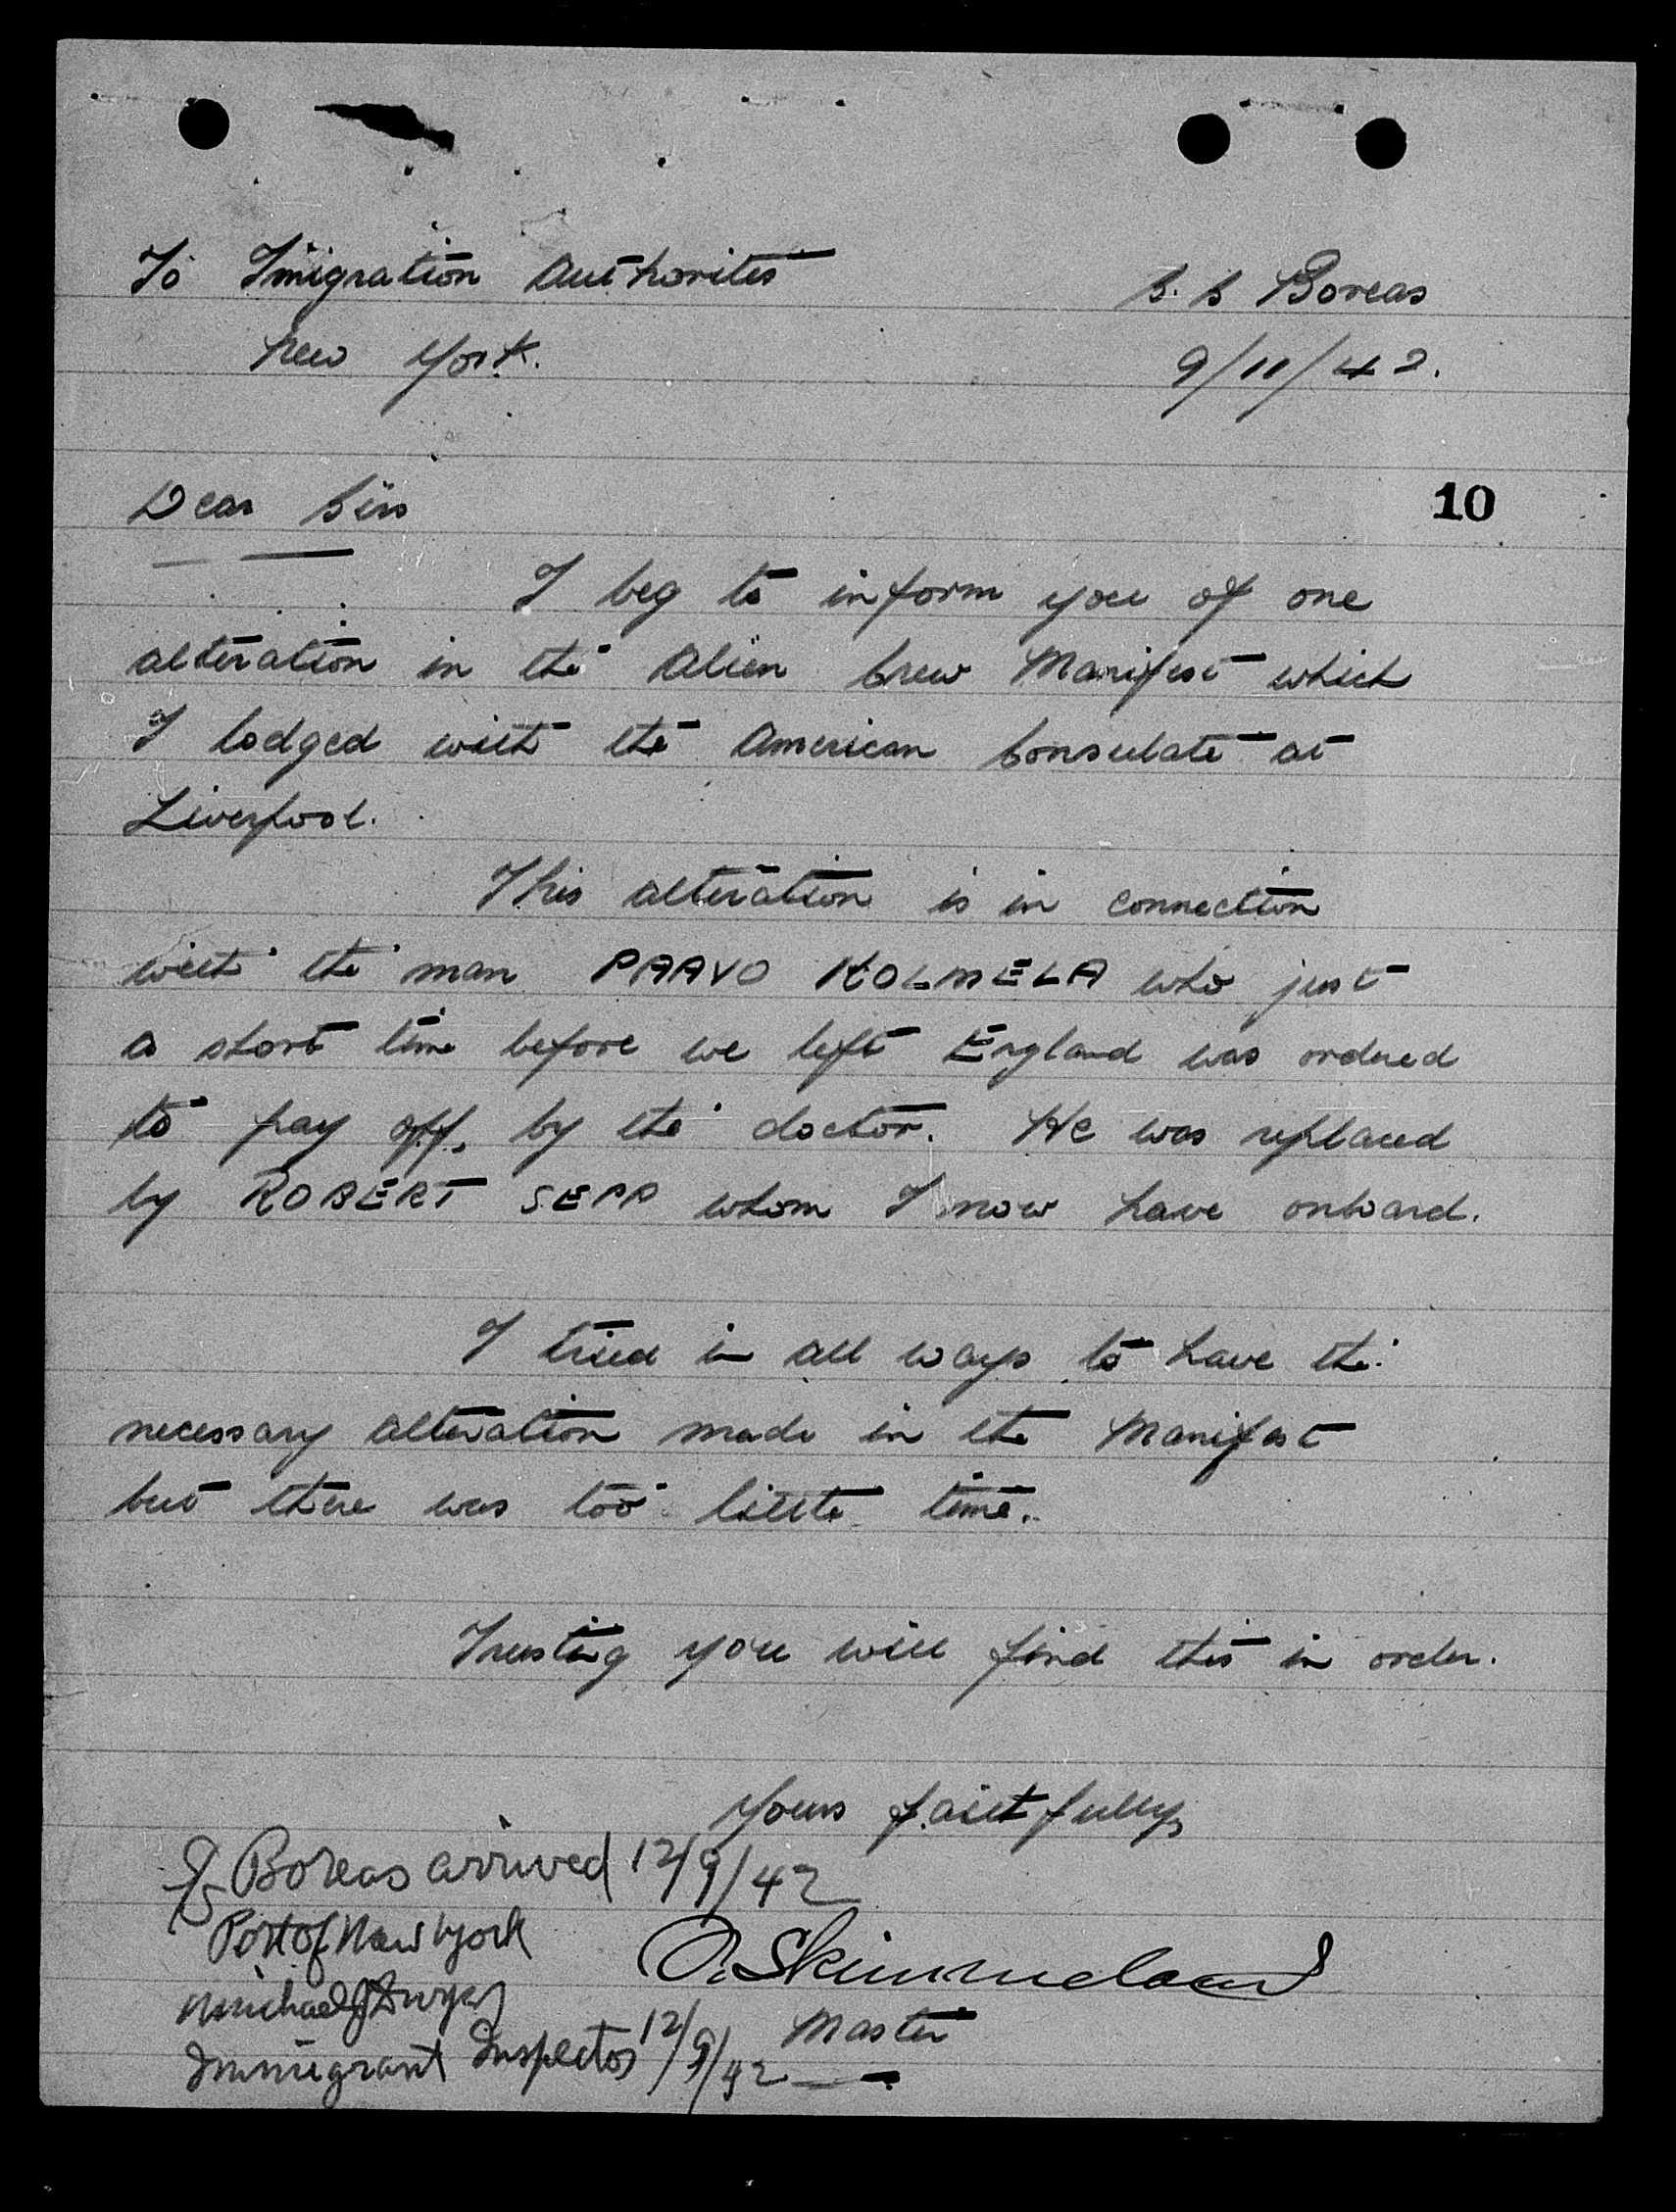 To Imigration Authorites
S. S Boreas
New York.
9/11/42.
Dear Sirs
10
I beg to inform you of one
alteration in the Alien Crew Manifest which
I lodged with the American Consulate at
Liverpool.
This alteration is in connection
with the man PAAVO KOLMELA who just
a short time before we left England was ordered
to pay off, by the doctor. He was replaced
by ROBERT SEPP whom I now have onboard.
I tried in all ways to have the
necessary alteration made in the Manifest
but there was too little time.
Trusting you will find this in order.
Yours faithfully,
SS Boreas arrived 12/9/42
Port of New York
Michael J Dwyer
Master
Immigrant Inspector 12/9/42